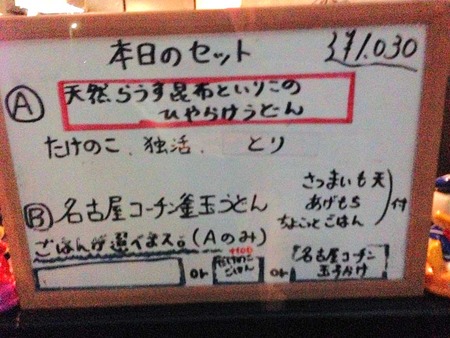 本日のセット
¥1,030
Ⓐ
天然らうす昆布といりこの
ひやかけうどん
たけのこ、独活、とり
Ⓑ 名古屋コーチン釜玉うどん
さつまいも天
あげもち
ちょこっとごはん
付
ごはんが選べまス。(Aのみ)
or
+100
たけのこ
ごはん
or
名古屋コーチン
玉子かけ